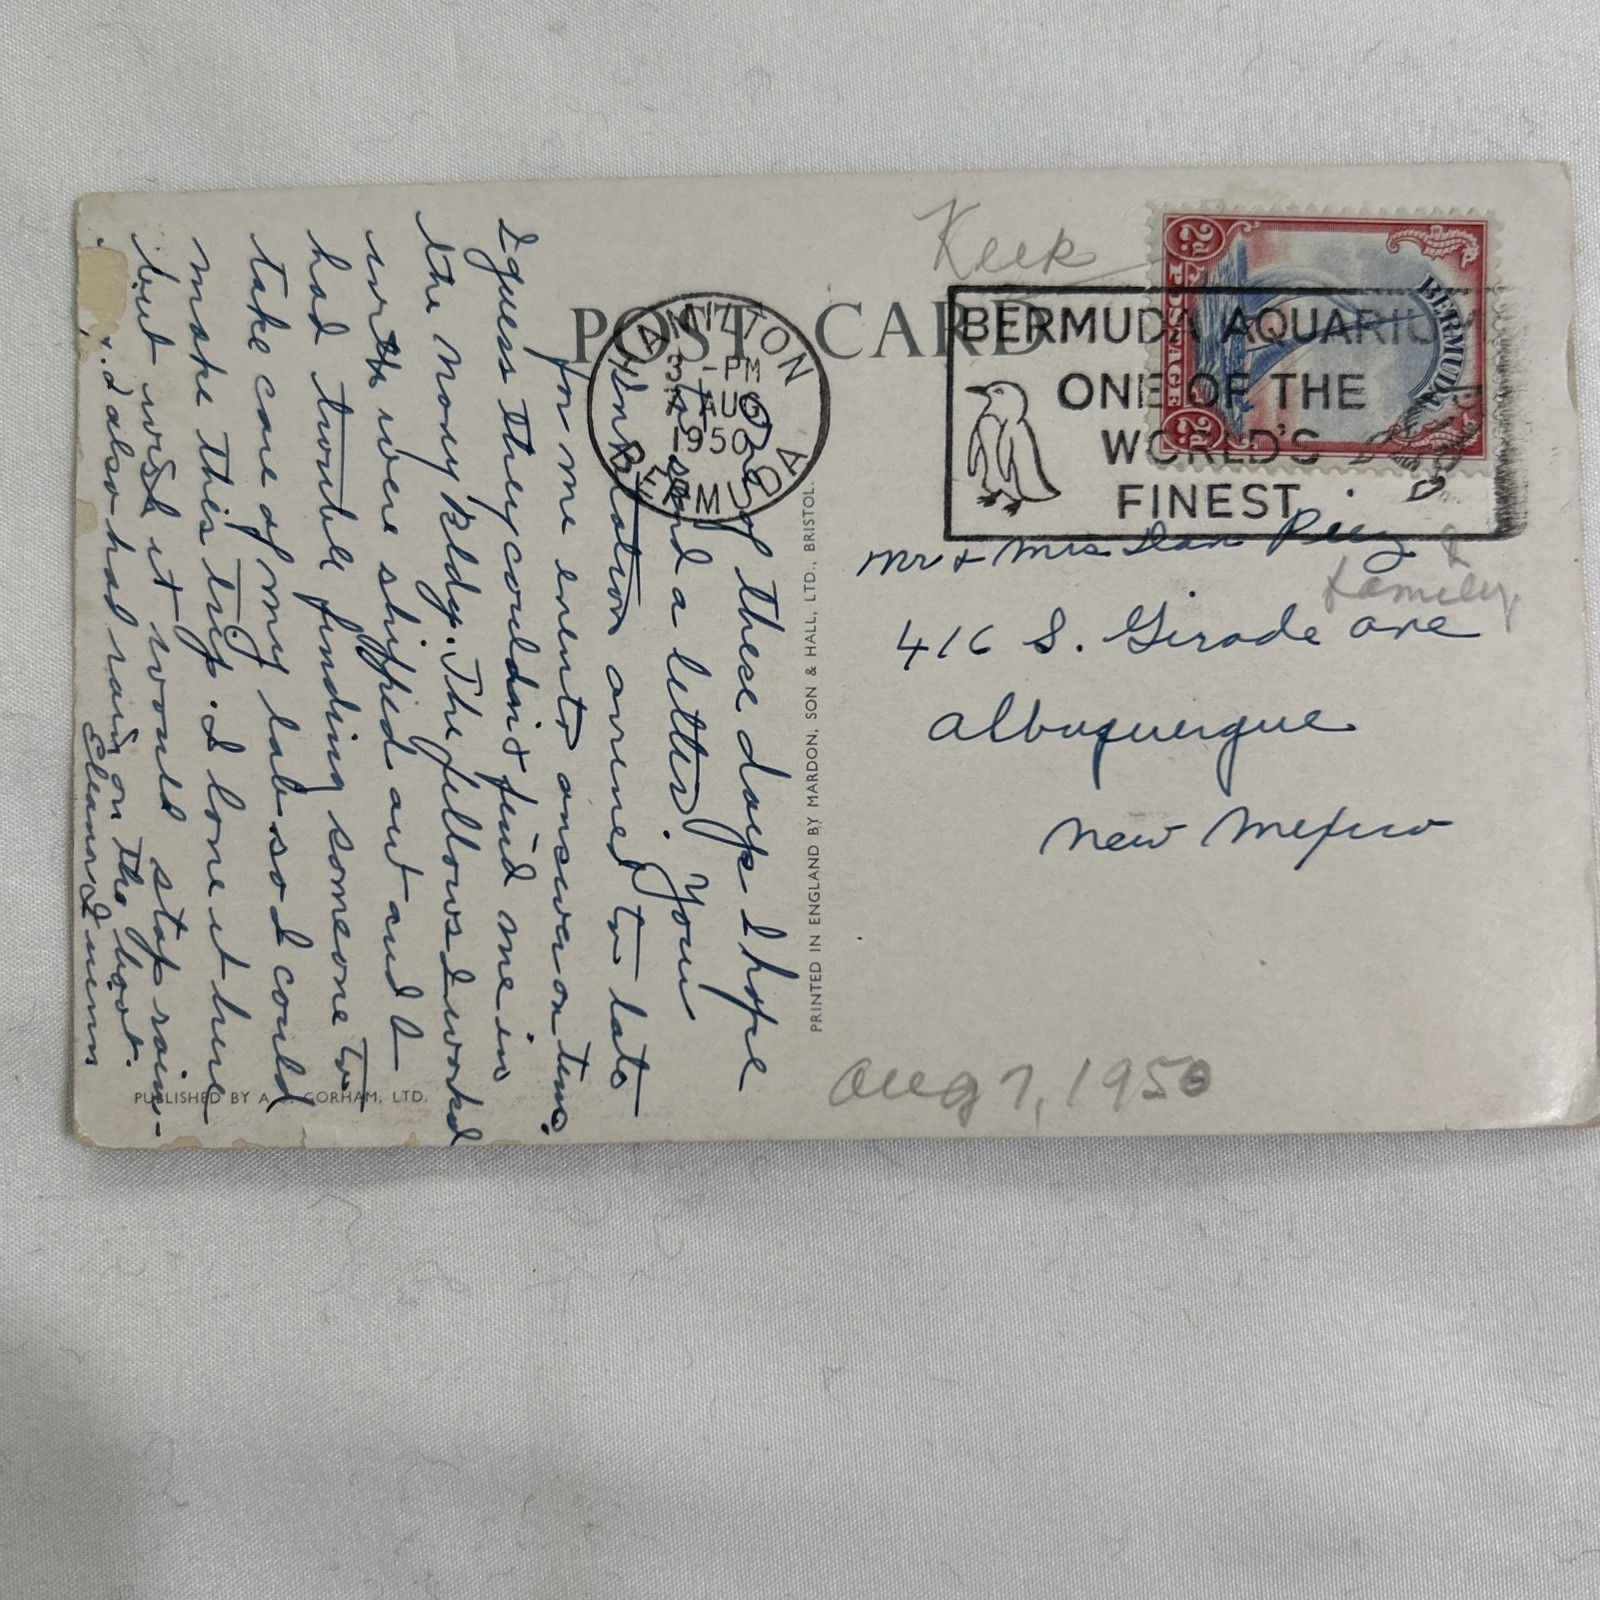 POST CARD
Keep
HAMILTON
3 - PM
7 AUG
1950
BERMUDA
BERMUDA AQUARIUM
ONE OF THE
WORLD'S
FINEST
2d
POSTAGE
BERMUDA
2d
One of these days I hope
to send a letter. Your
invitation arrived to late
for me even to answer on time.
I guess they couldn't find me in
the Navy Bldg. The fellows I worked
with were shipped out and I
had trouble finding someone to
take care of my lab so I could
make this trip. I love it here
but wish it would stop rain-
I also had rain on the boat.
Eleanor
Mr & Mrs Dan
& Family
416 S. Girade Ave
Albuquerque
New Mexico
Aug 7, 1950
PRINTED IN ENGLAND BY MARDON, SON & HALL, LTD., BRISTOL.
PUBLISHED BY A. J. GORHAM, LTD.